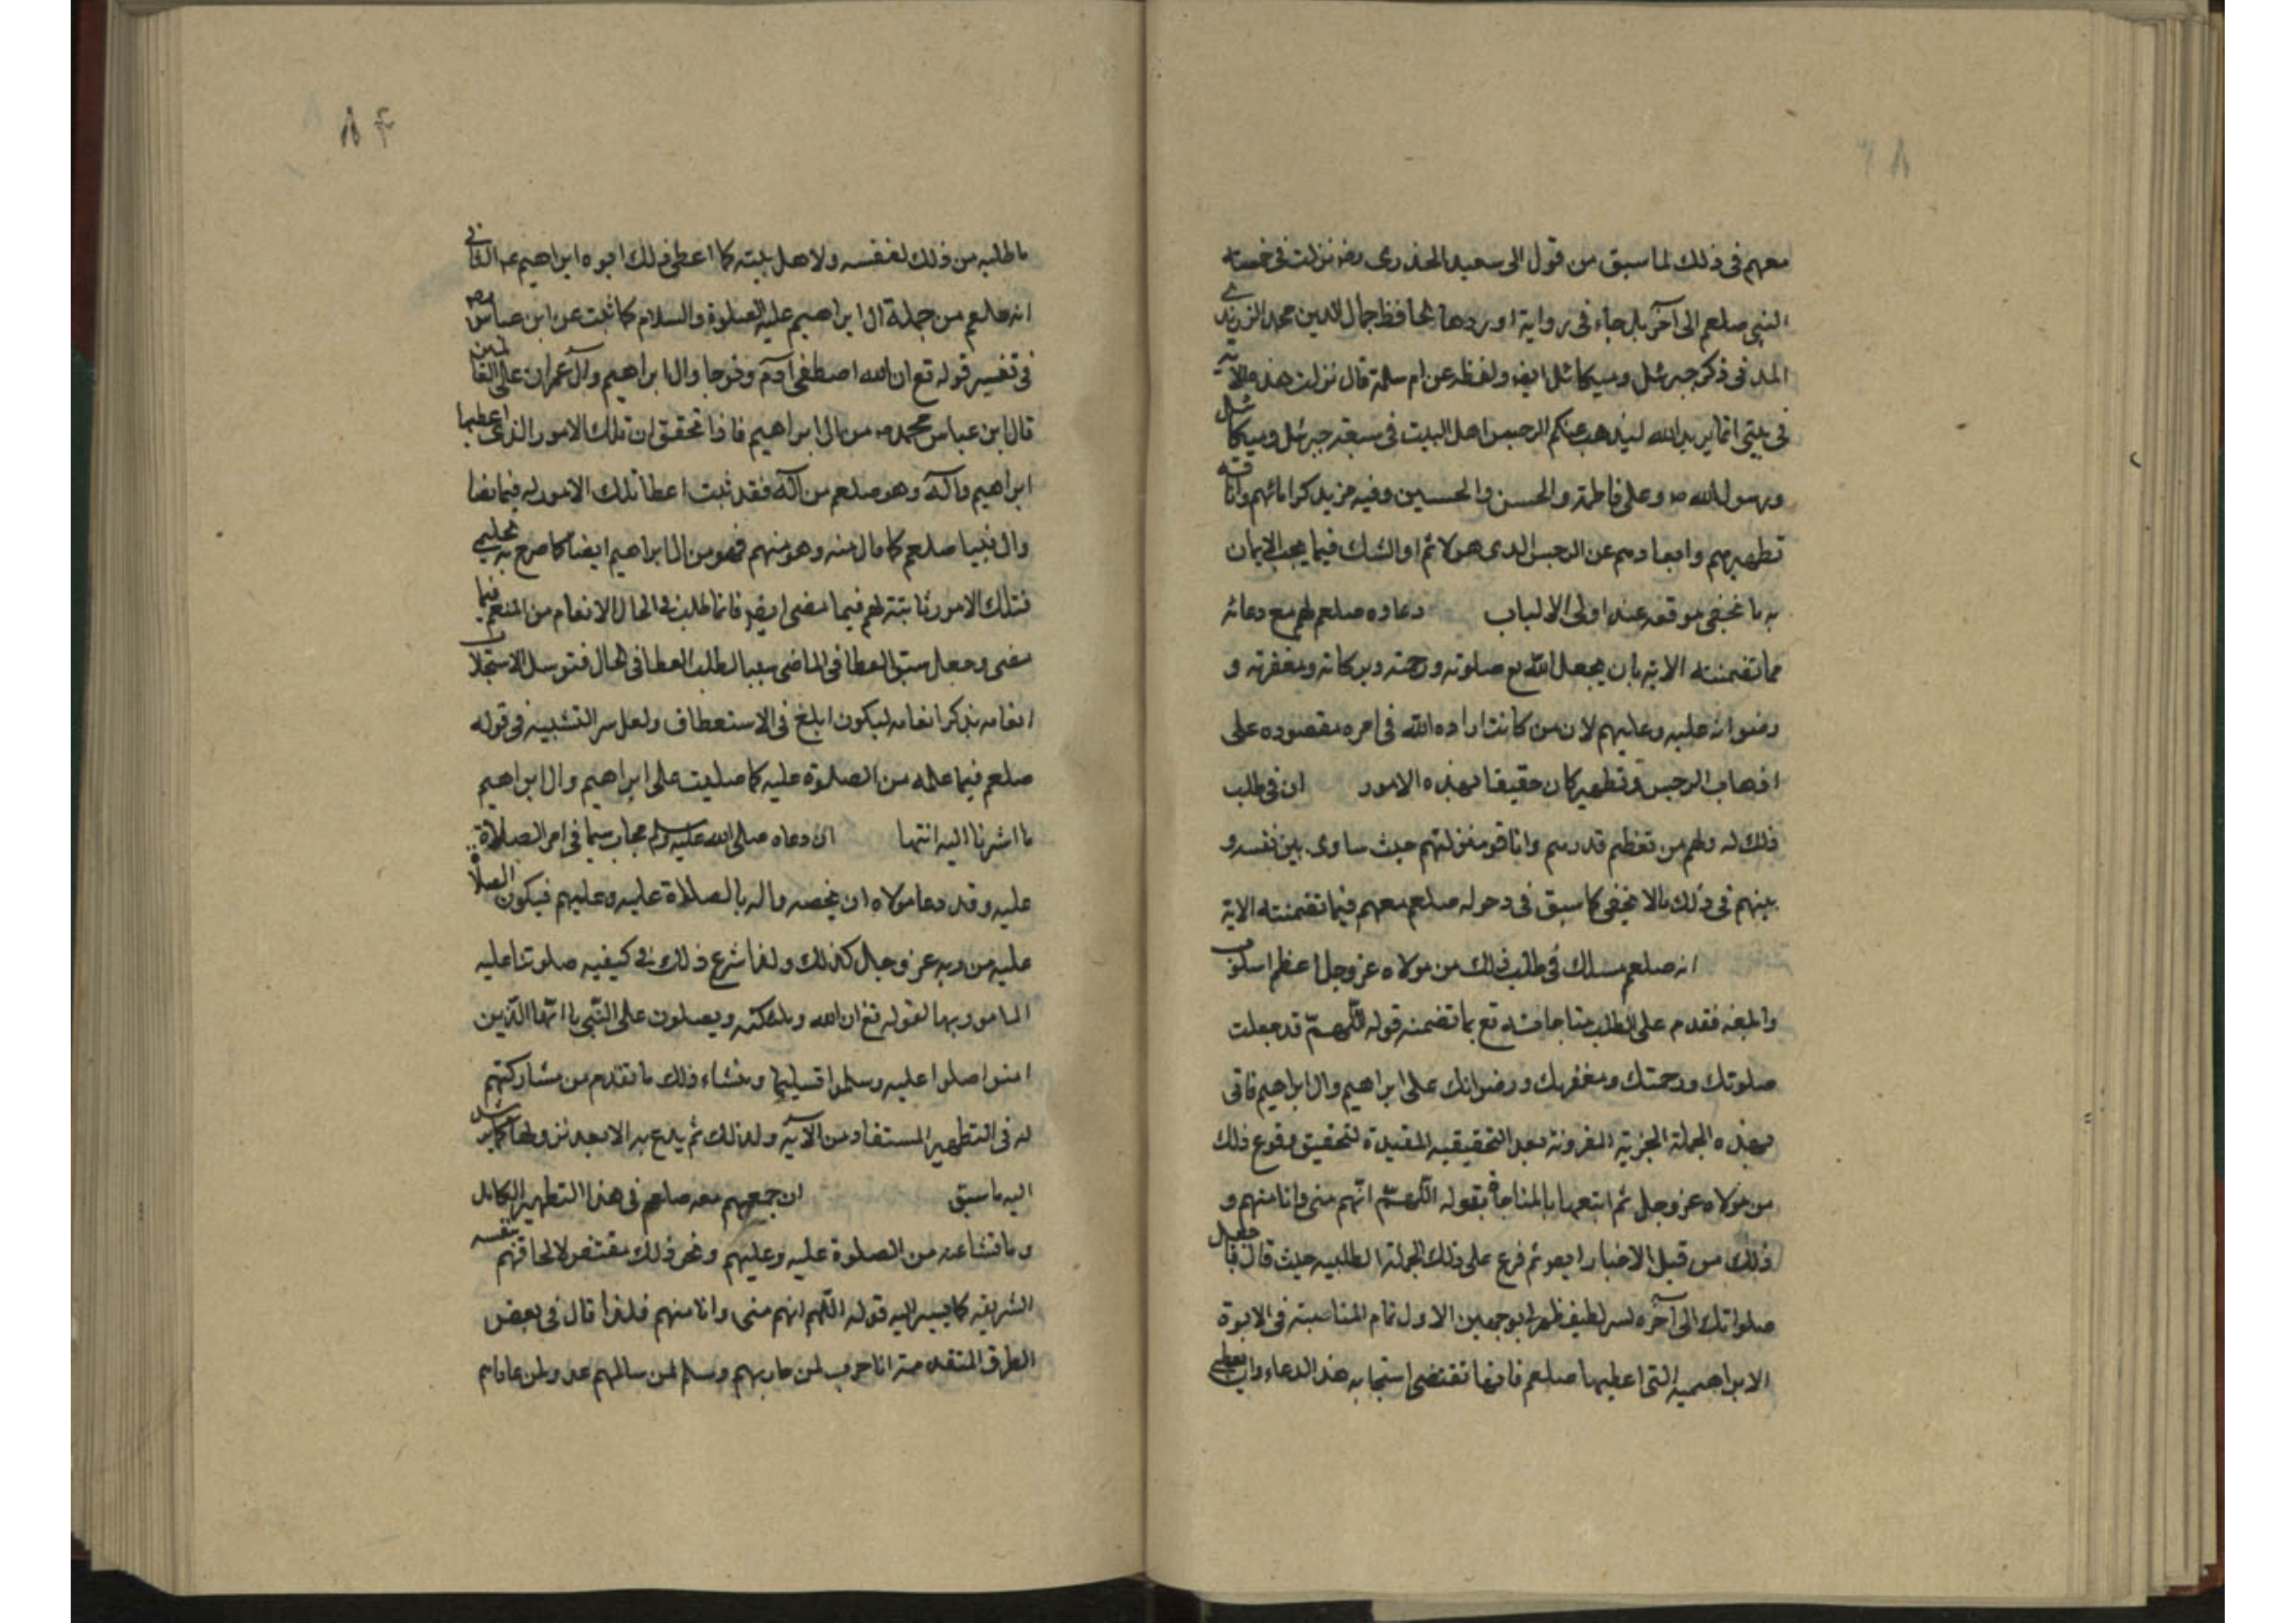 معهم فى ذلك لما سبق من قول ابى سعيد الخدرى رضه نزلت فى خمسة
النبى صلعم الى آخره بل جاء فى رواية اوردها الحافظ جمال الدين محمد الزرندى
المدنى ذكر جبرئيل وميكائيل ايضا ولفظه عن ام سلمة قال نزلت هذه الآية
فى بيتى انما يريد الله ليذهب عنكم الرجس اهل البيت فى سبعة جبرئيل وميكائيل
ورسول الله ص وعلى فاطمة والحسن والحسين وفيه مزيد كراماتهم وانافة
تطهيرهم وابعادهم عن الرجس الذى هو الاثم او الشك فيما يجب الايمان
به ما يخفى موقعه عند اولى الالباب دعاوه صلعم لهم مع دعائه
مما تضمنته الاية بان يجعل الله مع صلوته ورحمته وبركاته ومغفرته و
رضوانه عليه وعليهم لان من كانت اراده الله فى امره مقصوده على
اذهاب الرجس وتطهير كان حقيقا بهذه الامور ان فى طلب
ذلك له ولهم من تعظيم قدرهم وانافة منزلتهم حيث ساوى بين نفسه و
بينهم فى ذلك مالا يخفى كما سبق فى دخوله صلعم معهم فيما تضمنته الاية
انه صلعم سلك فى طلب ذلك من مولاه عز وجل اعظم اسلوب
وابلغه فقدم على الطلب مناجاته تع بما تضمنه قوله اللهم قد جعلت
صلوتك ورحمتك ومغفرتك ورضوانك على ابراهيم وال ابراهيم فاتى
بهذه الجملة الخبرية المقرونة بقد التحقيقيه المفيدة لتحقيق وقوع ذلك
من مولاه عز وجل ثم اتبعها بالمناجاة بقوله اللهم انهم منى وانا منهم و
ذلك من قبيل الاخبار ايض ثم فرع على ذلك الجملة الطلبيه حيث قال فاجعل
صلواتك الى آخره لسر لطيف ظهر لى بوجهين الاول تمام المناصبته فى الابوة
الابراهيميه التى اعطيها صلعم فانها تقتضى استجابه هذا الدعاء وان يعطى
ما طلبه من ذلك لنفسه ولاهل بيته كما اعطى ذلك ابوه ابراهيم عم الثانى
انه صلعم من جملة ال ابراهيم عليه الصلوة والسلام كما ثبت عن ابن عباس رضه
فى تفسير قوله تع ان الله اصطفى آدم ونوحا وال ابراهيم وآل عمران على العالمين
قال ابن عباس محمد ص من ال ابراهيم فاذا تحقق ان تلك الامور الذى اعطيها
ابراهيم وآله وهو صلعم من آله فقد ثبت اعطا تلك الامور له فيما مضا
وال نبينا صلعم كامال منه وهو منهم فهو من ال ابراهيم ايضا كما صرح به
فتلك الامور ثابتة لهم فيما مضى ايض فانما طلب فى الحال الانعام من المنعم فيما
مضى وجعل سبق العطا فى الماضى سببا لطلب العطا فى الحال فتوسل لاستجلاب
انعامه بذكر انعامه ليكون ابلغ فى الاستعطاف ولعل سر التشبيه فى قوله
صلعم فيما علمه من الصلوة عليه كما صليت على ابراهيم وال ابراهيم
ما اشرنا اليه انتها ان دعاه صلى الله عليه وسلم مجاب سيما فى امر الصلاة
عليه وقد دعا مولاه ان يخصه واله بالصلاة عليه وعليهم فيكون الصلاة
عليه من ربه عز وجل كذلك ولذا شرع ذلك فى كيفيه صلوتنا عليه
المامور بها لقوله تع ان الله وملئكته ويصلون على النبى يا ايها الذين
امنوا صلوا عليه وسلموا تسليما ومنشاء ذلك ما تقدم من مشاركتهم
له فى التطهير المستفاد من الآية ولذلك ثم يدع به الا بعد نزولها كما يرشد
اليه ما سبق ان جمعهم معه صلعم فى هذا التطهير الكامل
وما نشا عنه من الصلوة عليه وعليهم ونحو ذلك مقتض لالحاقهم بنفسه
الشريفه كما يسير اليه قوله اللهم انهم منى وانا منهم فلذا قال فى بعض
الطرق المتقدمة انا حرب لمن حاربهم وسلم لمن سالمهم عدو لمن عاداهم